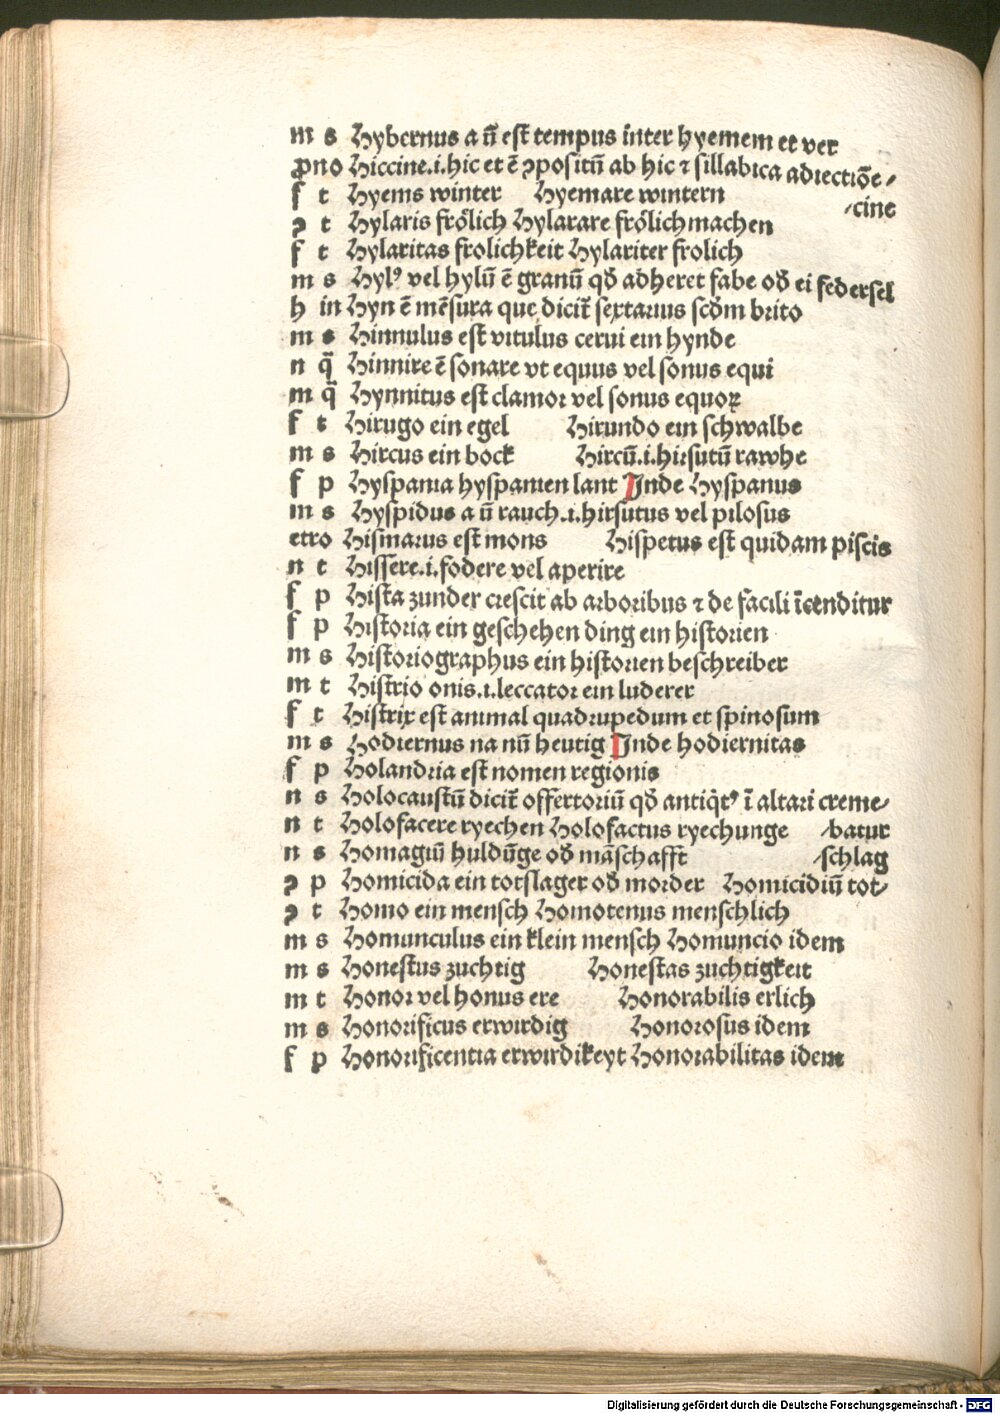 m s Hybernus a ū est tempus inter hyemem et ver
ꝓno Hiccine.i.hic et ē ꝯpositū ab hic ⁊ sillabica adiectiōe⸗
f t Hyems winter Hyemare wintern ⸗cine
ꝯ t Hylaris frölich Hylarare frölich machen
f t Hylaritas frolichkeit Hylariter frolich
m s Hylꝰ vel hylū ē granū qd̄ adheret fabe od̄ ei federsel
h in Hyn ē mēsura que dicit̄ sextarius scd̄m brito
m s Hinnulus est vitulus cerui ein hynde
n q̄ Hinnire ē sonare vt equus vel sonus equi
m q̄ Hynnitus est clamor vel sonus equoꝝ
f t Hirugo ein egel Hirundo ein schwalbe
m s Hircus ein bock Hircū.i.hirsutū rawhe
f p Hyspania hyspanien lant Inde Hyspanus
m s Hyspidus a ū rauch.i.hirsutus vel pilosus
etro Hismarus est mons Hispetus est quidam piscis
n t Hissere.i.fodere vel aperire
f p Hista zunder crescit ab arboribus ⁊ de facili īcenditur
f p Historia ein geschehen ding ein historien
m s Historiographus ein historien beschreiber
m t Histrio onis.i.leccator ein luderer
f t Histrix est animal quadrupedum et spinosum
m s Hodiernus na nū heutig Inde hodiernitas
f p Holandria est nomen regionis
n s Holocaustū dicit̄ offertoriū qd̄ antiq̇tꝰ ī altari creme⸗
n t Holofacere ryechen Holofactus ryechunge ⸗batur
n s Homagiū huldūge od̄ māschafft ⸗schlag
ꝯ p Homicida ein totslager od̄ morder Homicidiū tot⸗
ꝯ t Homo ein mensch Homotenus menschlich
m s Homunculus ein klein mensch Homuncio idem
m s Honestus zuchtig Honestas zuchtigkeit
m t Honor vel honus ere Honorabilis erlich
m s Honorificus erwirdig Honorosus idem
f p Honorificentia erwirdikeyt Honorabilitas idem
Digitalisierung gefördert durch die Deutsche Forschungsgemeinschaft - DFG